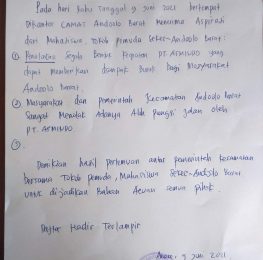 Pada hari Rabu Tanggal 9 Juni 2021 bertempat
Dikantor CAMAT Andoolo Barat menerima Aspirasi
dari Mahasiswa, Tokoh Pemuda Sekec-Andoolo Barat:
① Penolakan Segala Bentuk Kegiatan PT. ARMINDO yang
dapat memberikan dampak Buruk Bagi Masyarakat
Andoolo Barat.
② Masyarakat dan pemerintah Kecamatan Andoolo Barat
Sangat Menolak Adanya Alih Fungsi Jalan oleh
PT. ARMINDO
③.
Demikian hasil pertemuan antar pemerintah Kecamatan
bersama Tokoh pemuda, Mahasiswa Sekec-Andoolo Barat
untuk dijadikan Bahan Acuan semua pihak.
Daftar Hadir Terlampir
9 Juni 2021